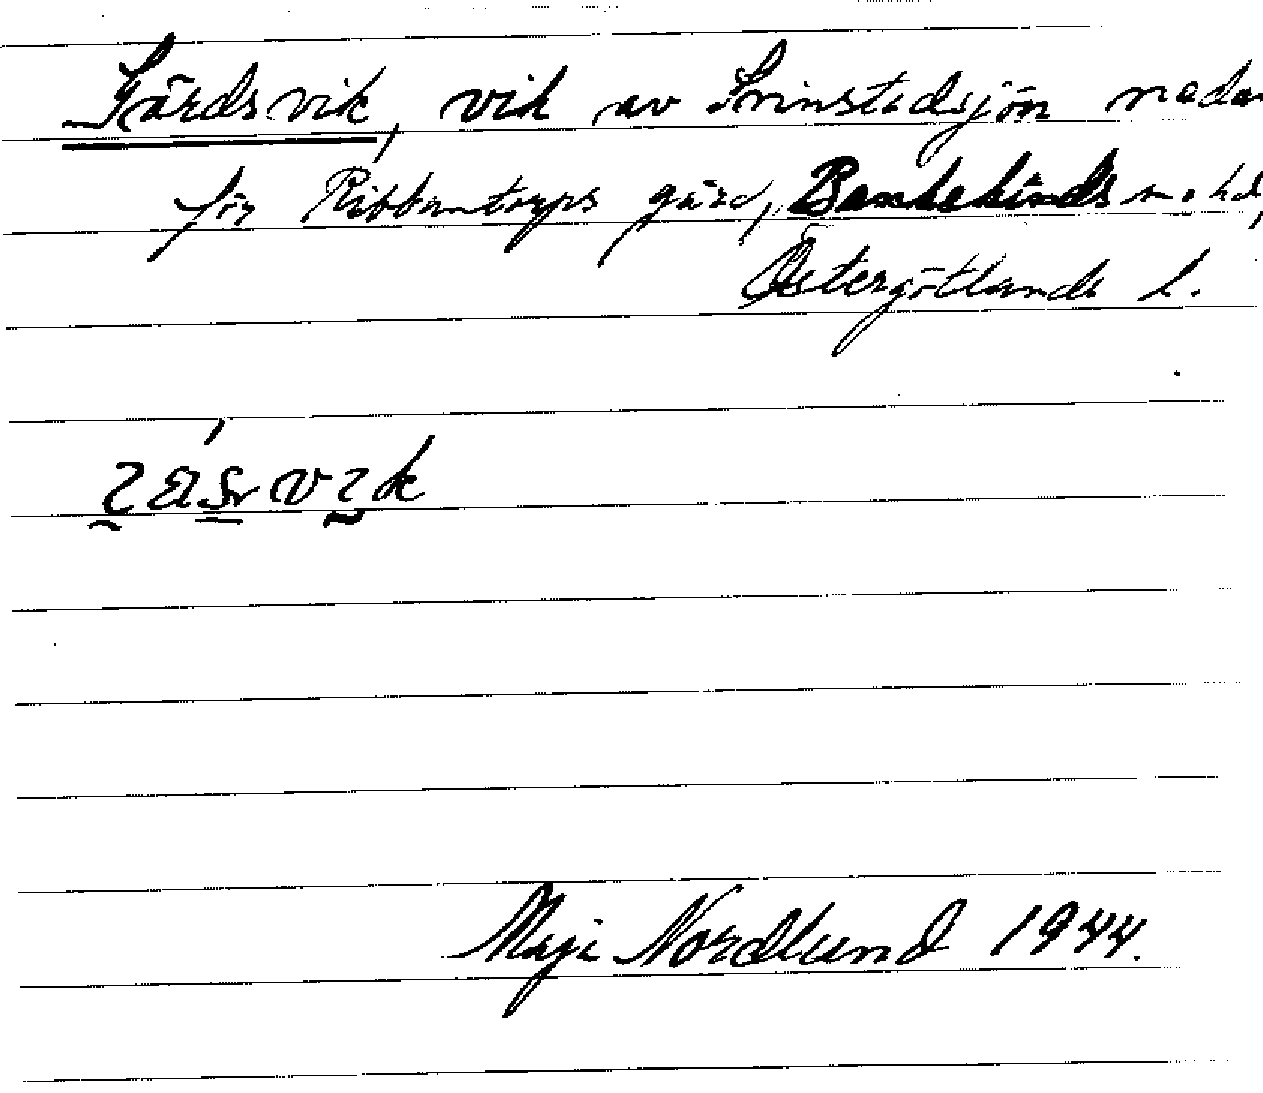 Gärdsvik, vik av Svinstadsjön nedan
för Ribbantorps gård, Bankekinds sn. hd,
Östergötlands l.
Maja Nordlund 1944.